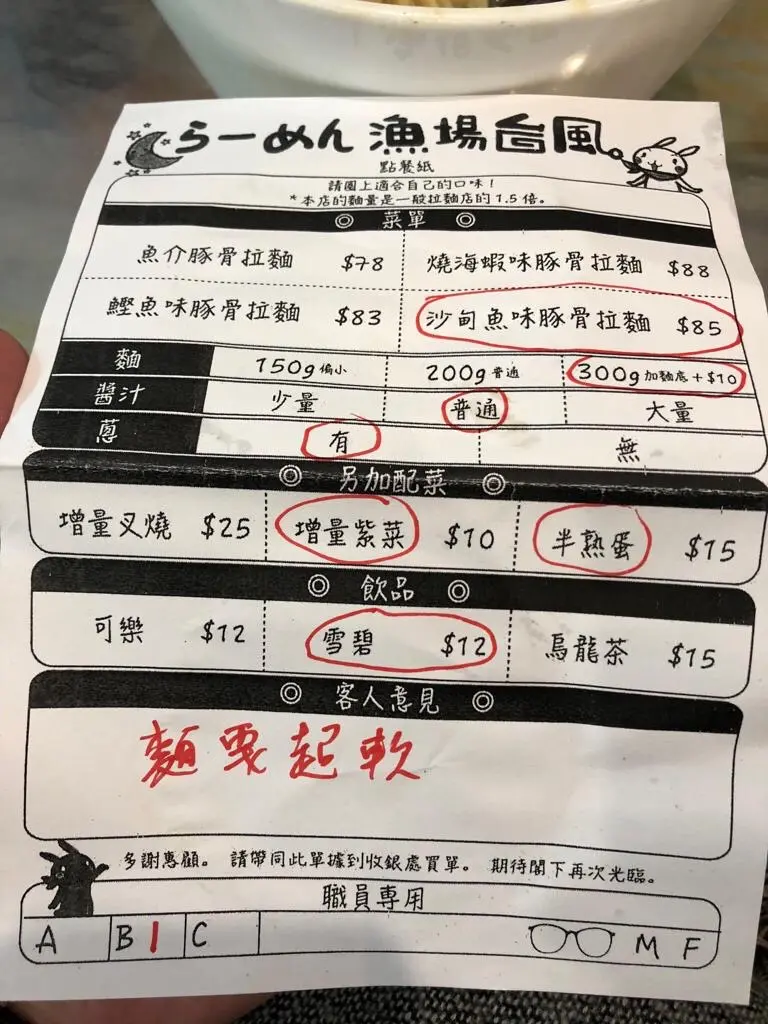 らーめん 漁場台風
點餐紙
請圈上適合自己的口味！
*本店的麵量是一般拉麵店的1.5倍。
◎ 菜單 ◎
魚介豚骨拉麵 $78 燒海蝦味豚骨拉麵 $88
鰹魚味豚骨拉麵 $83 沙甸魚味豚骨拉麵 $85
麵 150g偏小 200g普通 300g加麵底+$10
醬汁 少量 普通 大量
蔥 有 無
◎ 另加配菜 ◎
增量叉燒 $25 增量紫菜 $10 半熟蛋 $15
◎ 飲品 ◎
可樂 $12 雪碧 $12 烏龍茶 $15
◎ 客人意見 ◎
麵要起軟
多謝惠顧。 請帶同此單據到收銀處買單。 期待閣下再次光臨。
職員專用
A B | C M F